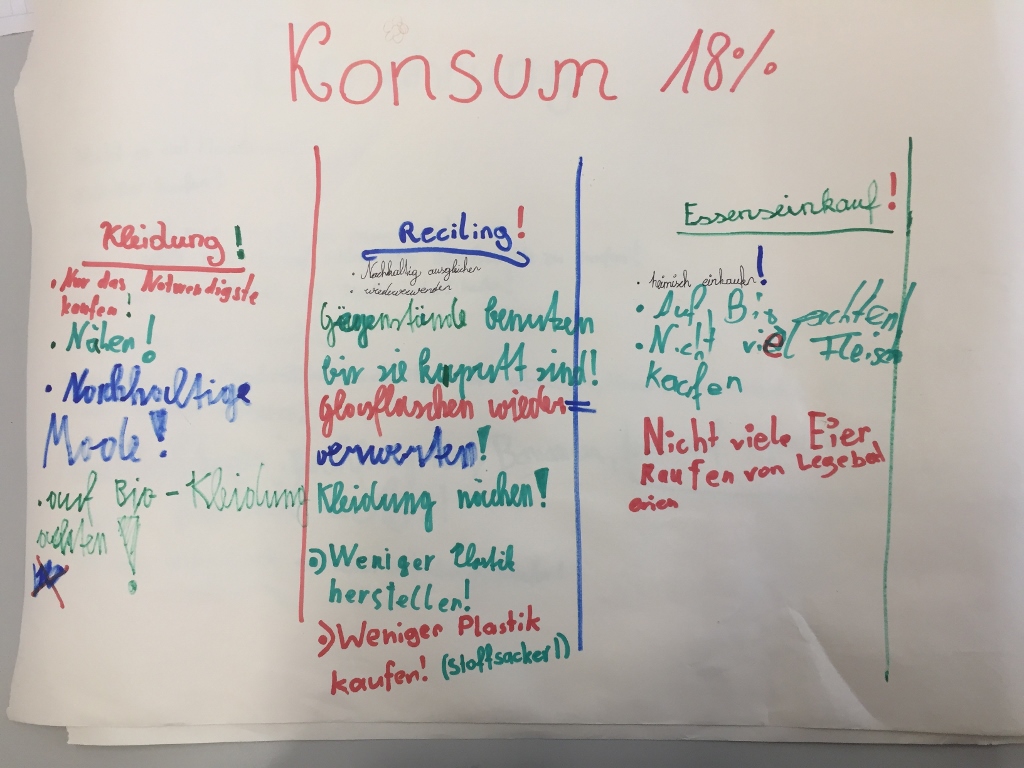 Konsum 18%
Kleidung!
• Nur das Notwendigste
kaufen!
• Nähen!
• Nachhaltige
Mode!
• auf Bio-Kleidung
achten!
Reciling!
• Nachhaltig ausgleichen
• wiederverwenden
Gegenstände benutzen
bis sie kaputt sind!
Glasflaschen wieder=
verwerten!
Kleidung nähen!
•) Weniger Plastik
herstellen!
•) Weniger Plastik
kaufen! (Stoffsackerl)
Essenseinkauf!
• heimisch einkaufen!
• Auf Bio achten!
• Nicht viel Fleisch
kaufen
Nicht viele Eier
kaufen von Legebat
erien